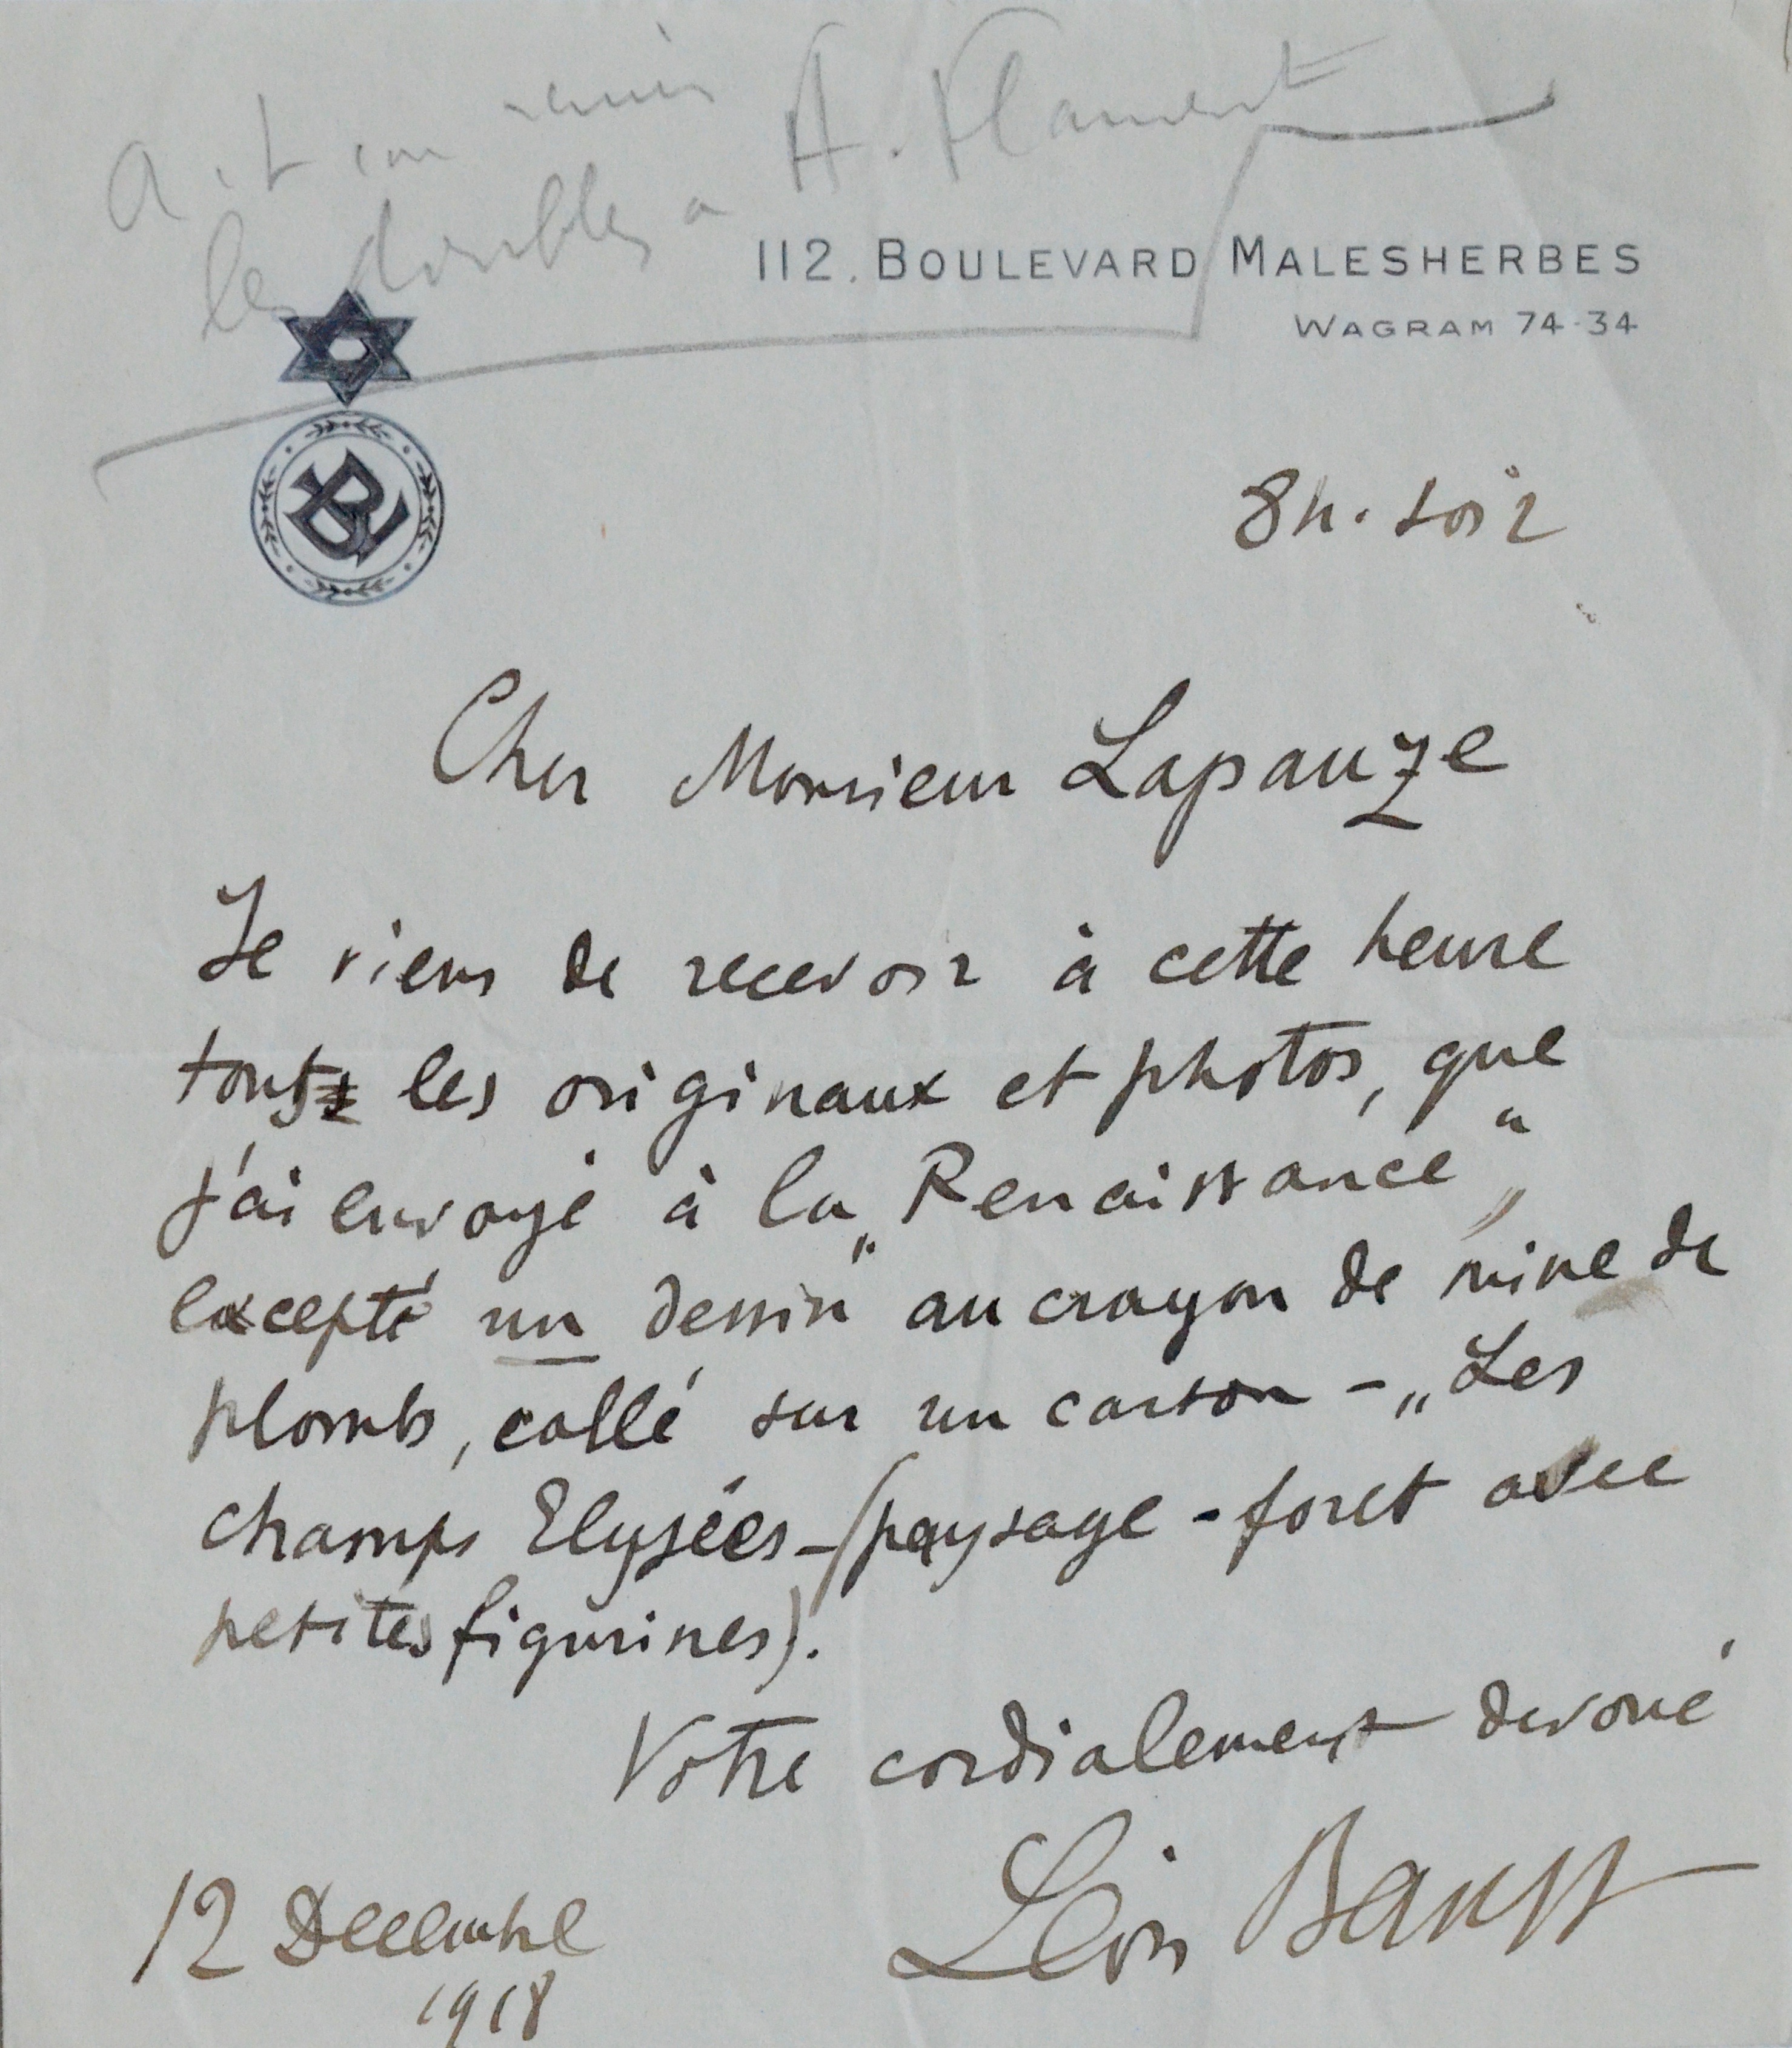 A-t-on remis
les doubles à A. Flament
112. BOULEVARD MALESHERBES
WAGRAM 74-34
8h. soir
Cher Monsieur Lapauze
Je viens de recevoir à cette heure
tous les originaux et photos, que
j'ai envoyé à la „Renaissance“,
excepté un dessin au crayon de mine de
plomb, collé sur un carton – „Les
champs Elysées – (paysage - foret avec
petites figurines).
Votre cordialement devoué
Léon Bakst
12 Decembre
1918